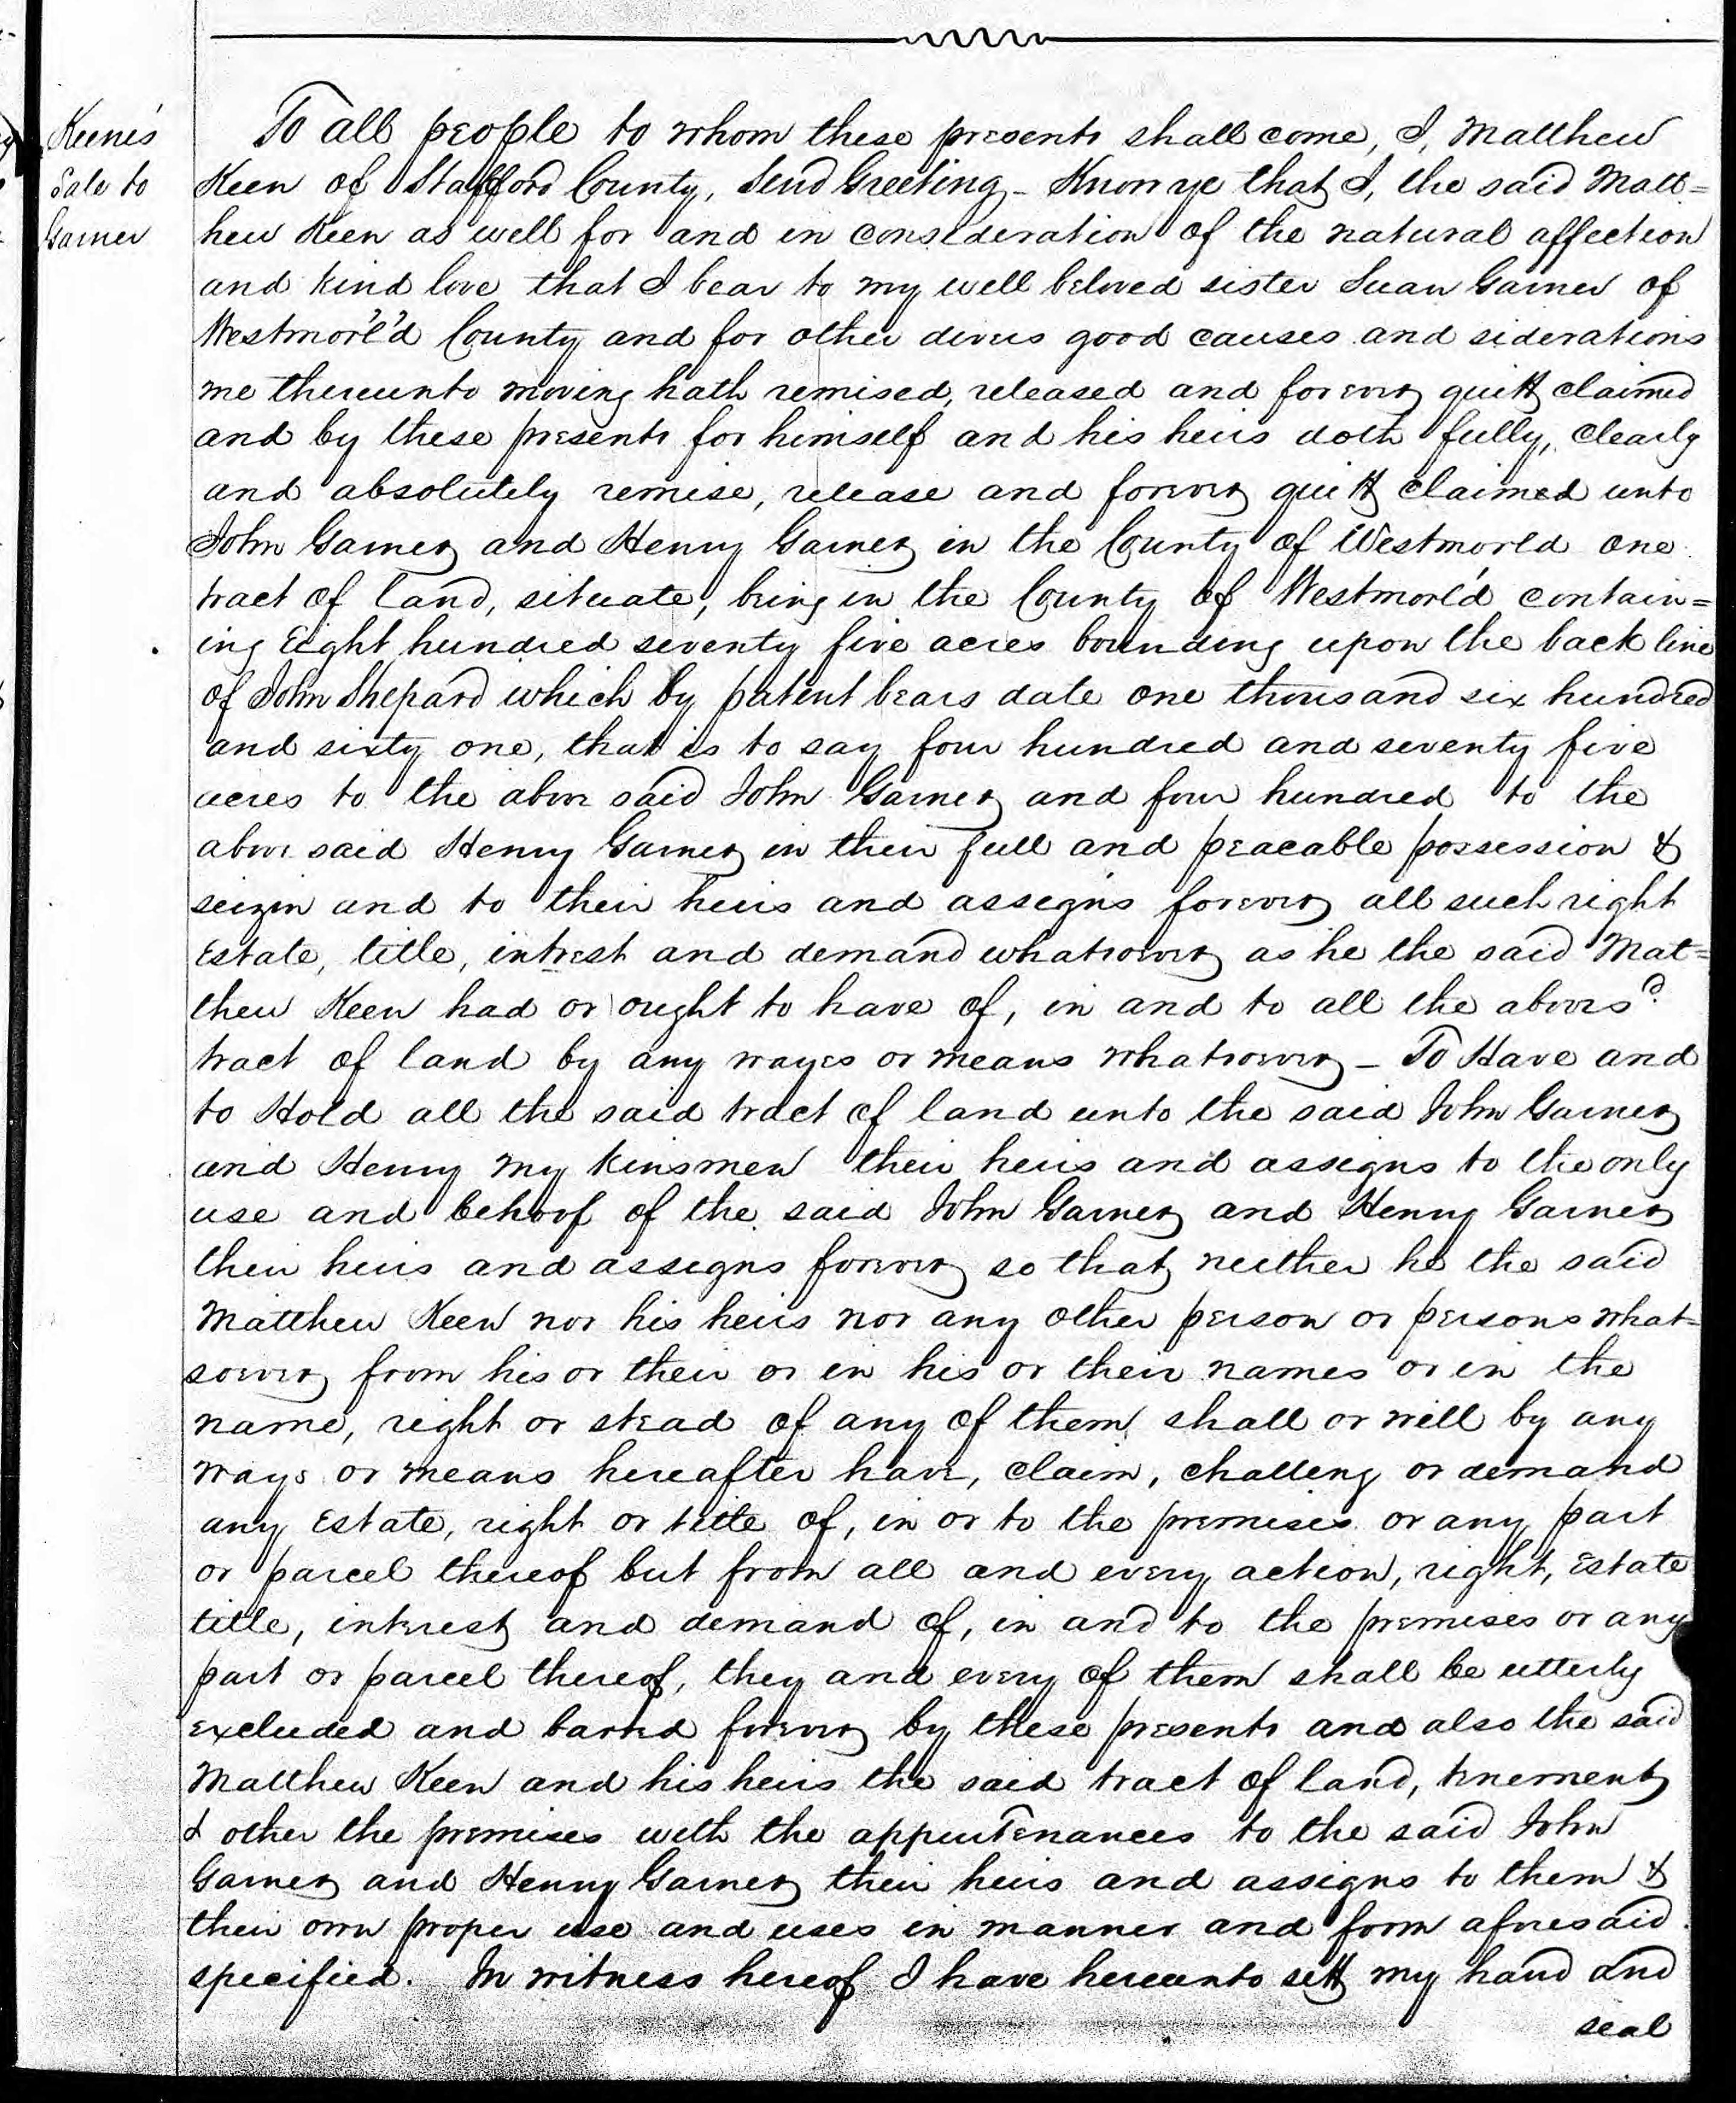 Keene's
Sale to
Garner
To all people to whom these presents shall come, I, Matthew
Keen of Stafford County, Send Greeting – Know ye that I, the said Matt=
hew Keen as well for and in consideration of the natural affection
and kind love that I bear to my well beloved sister Susan Garner of
Westmor'l'd County and for other divers good causes and siderations
me thereunto moving hath remised, released and forever quitt claimed
and by these presents for himself and his heirs doth fully, clearly
and absolutely remise, release and forever quitt claimed unto
John Garner and Henry Garner in the County of Westmorld one
tract of land, situate, being in the County of Westmorl'd contain=
ing Eight hundred seventy five acres bounding upon the back line
of John Shepard which by patent bears date one thousand six hundred
and sixty one, that is to say four hundred and seventy five
acres to the above said John Garner and four hundred to the
above said Henry Garner in their full and peacable possession &
seizin and to their heirs and assigns forever all such right
Estate, title, intrest and demand whatsoever as he the said Mat=
thew Keen had or ought to have of, in and to all the aboves.d
tract of land by any wayes or means whatsoever – To Have and
to Hold all the said tract of land unto the said John Garner
and Henry my kinsmen their heirs and assigns to the only
use and behoof of the said John Garner and Henry Garner
their heirs and assigns forever so that neither he the said
Matthew Keen nor his heirs nor any other person or persons what=
soever from his or their or in his or their names or in the
name, right or stead of any of them shall or will by any
ways or means hereafter have, claim, challeng or demand
any Estate, right or title of, in or to the premises or any part
or parcel thereof but from all and every action, right, Estate
title, interest and demand of, in and to the premises or any
part or parcel thereof, they and every of them shall be utterly
excluded and barred forever by these presents and also the said
Matthew Keen and his heirs the said tract of land, tenement
& other the premises with the appurtenances to the said John
Garner and Henry Garner their heirs and assigns to them &
their own proper use and uses in manner and form aforesaid
specified. In witness hereof I have hereunto sett my hand and
seal